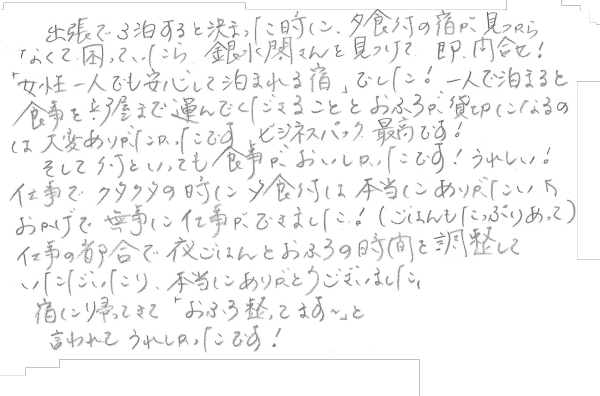 出張で3泊すると決まった時に、夕食付の宿が見つから
なくて困っていたら 銀水閣さんを見つけて 即、問合せ!
「女性一人でも安心して泊まれる宿」でした! 一人で泊まると
食事を部屋まで運んでくださることとおふろが貸切になるの
は大変ありがたかったです。ビジネスパック 最高です!
そして何といっても食事がおいしかったです! うれしい!
仕事でクタクタの時に夕食付は本当にありがたい!!
おかげで無事に仕事ができました!(ごはんもたっぷりあって)
仕事の都合で夜ごはんとおふろの時間を調整して
いただいたり、本当にありがとうございました。
宿に帰ってきて「おふろ整ってます~」と
言われて うれしかったです!